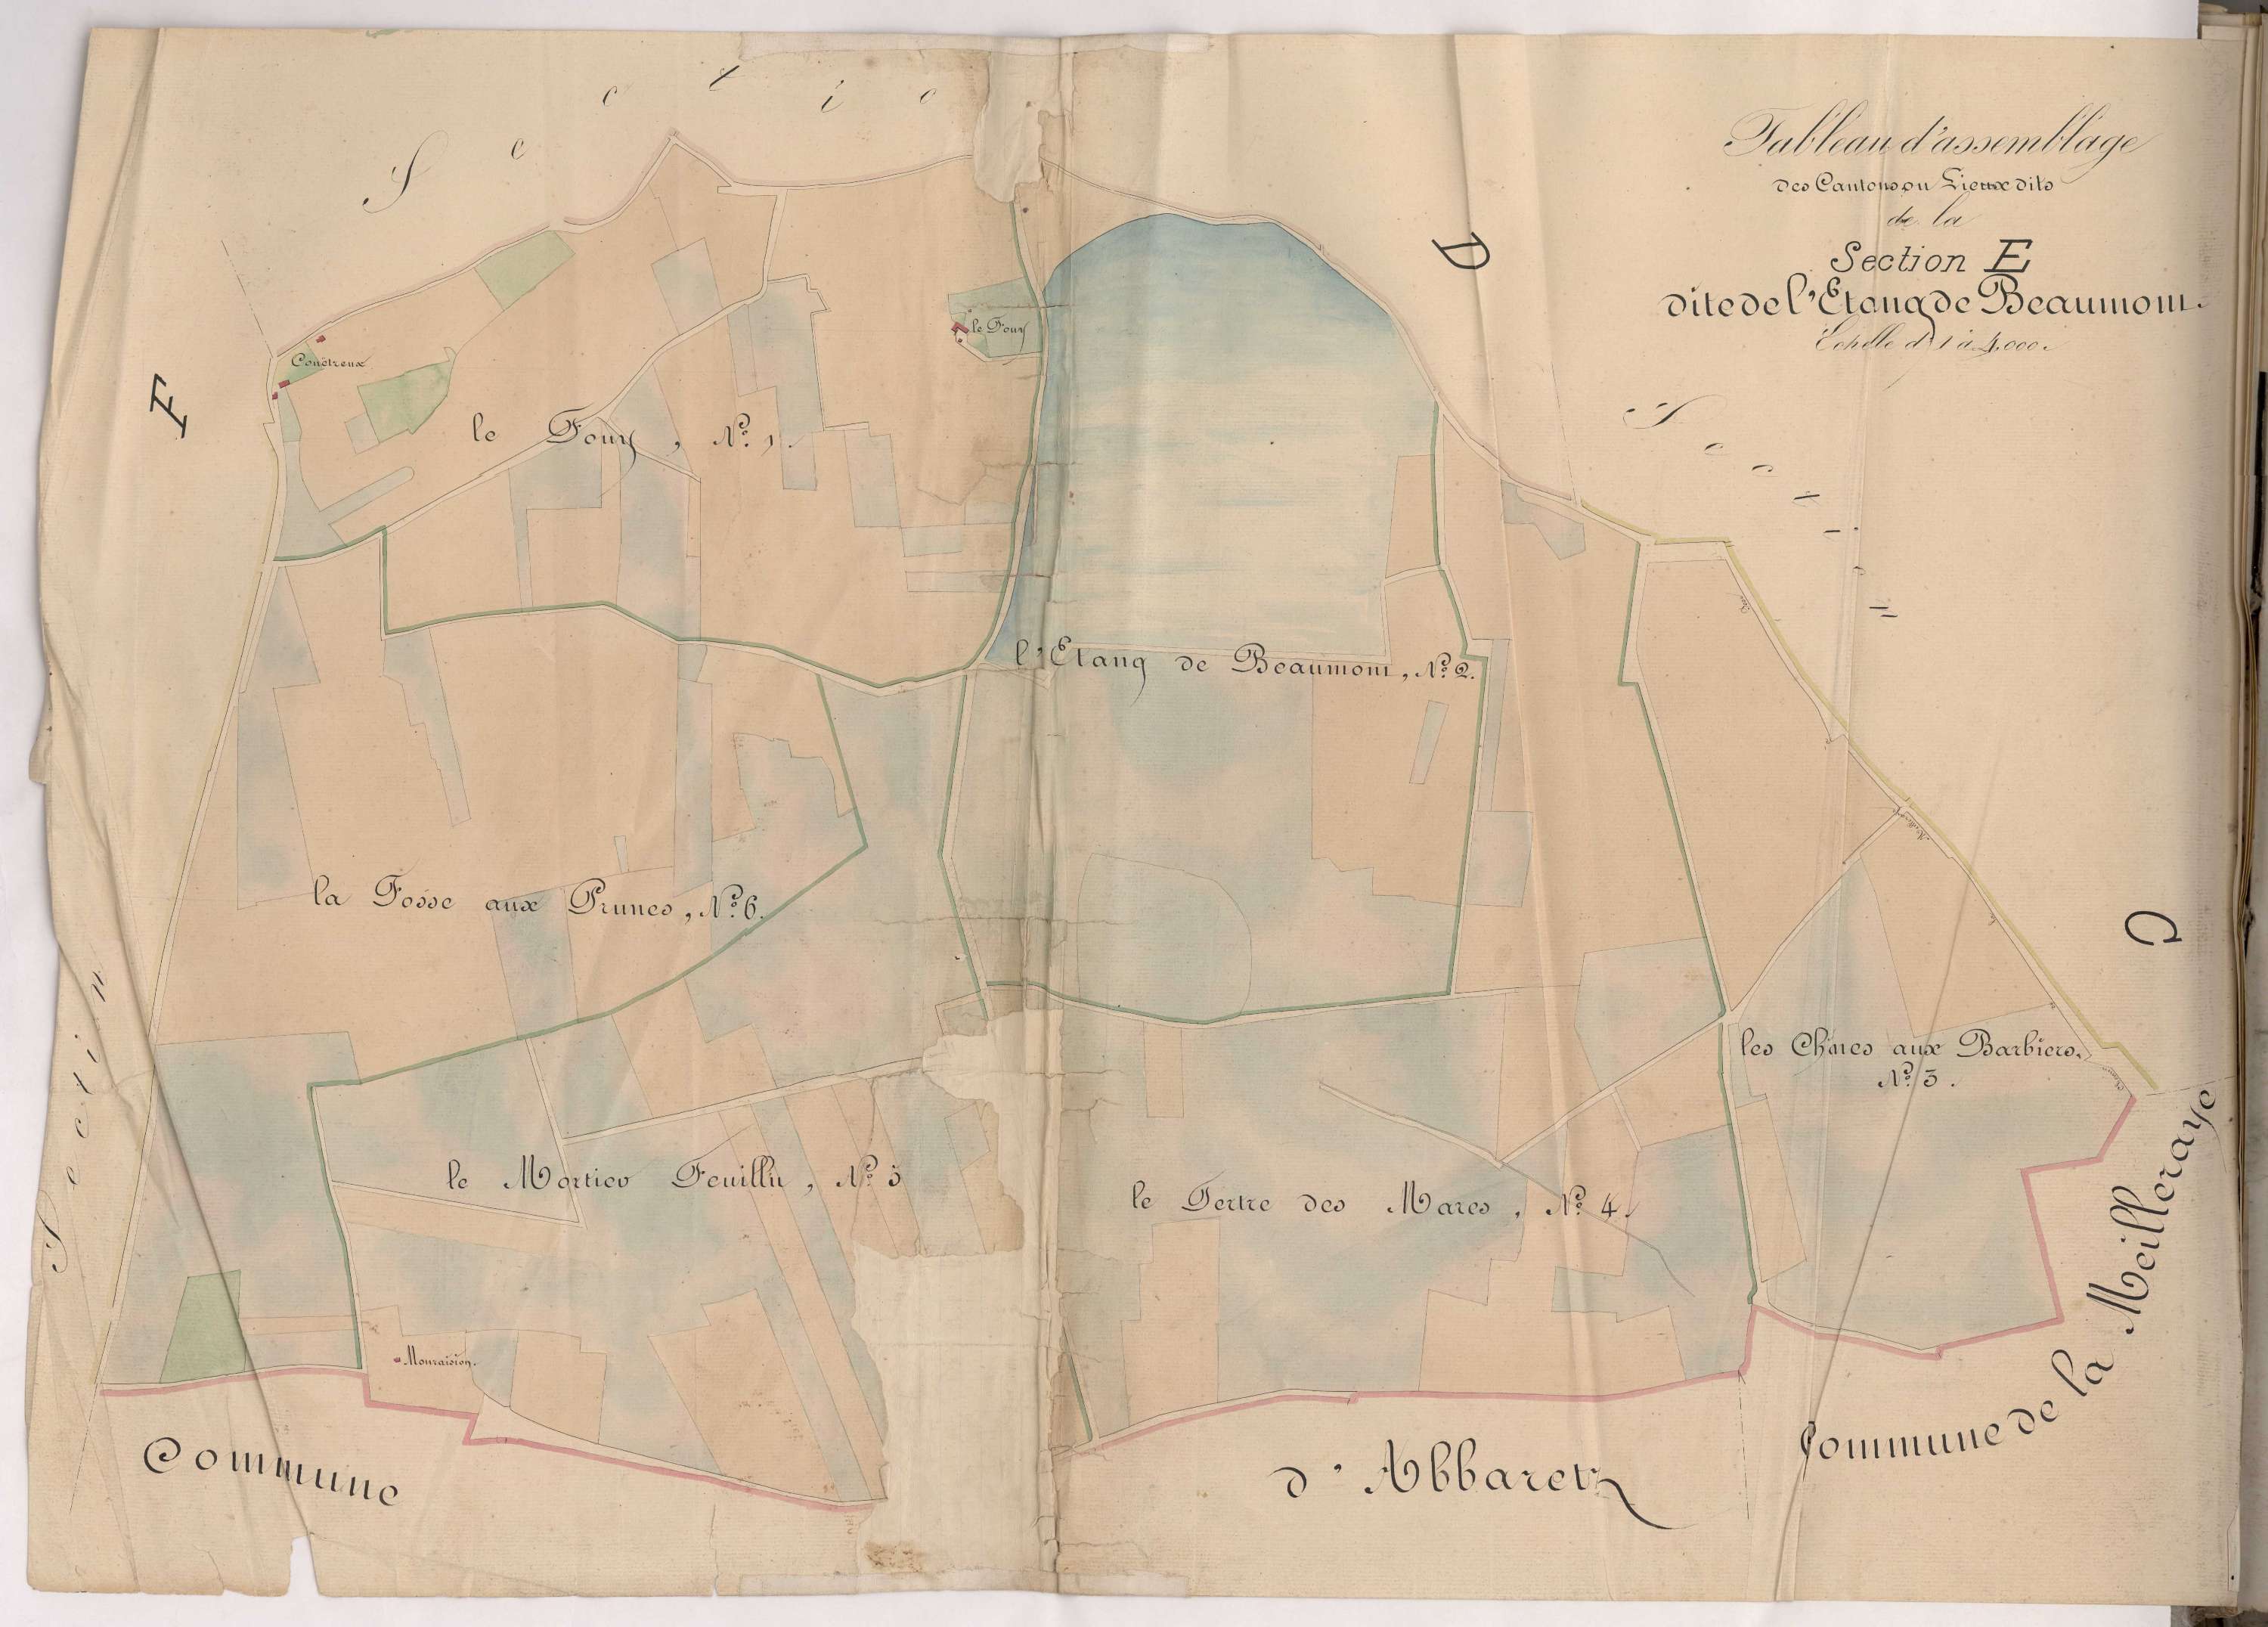 Tableau d'assemblage
des Cantons ou Lieux dits
de la
Section E
dite de l'Etang de Beaumont.
Echelle d' 1 à 4,000.
Sectio
D
F
Section
C
Section
Couëtreux
le Foury
le Foury, N.º 1.
l'Etang de Beaumont, N.º 2.
la Fosse aux Prunes, N.º 6.
les Chênes aux Barbiers,
N.º 3.
le Mortier Feuillu, N.º 5
le Tertre des Mares, N.º 4.
Mouraision.
Commune
d'Abbaretz
Commune de la Meilleraye